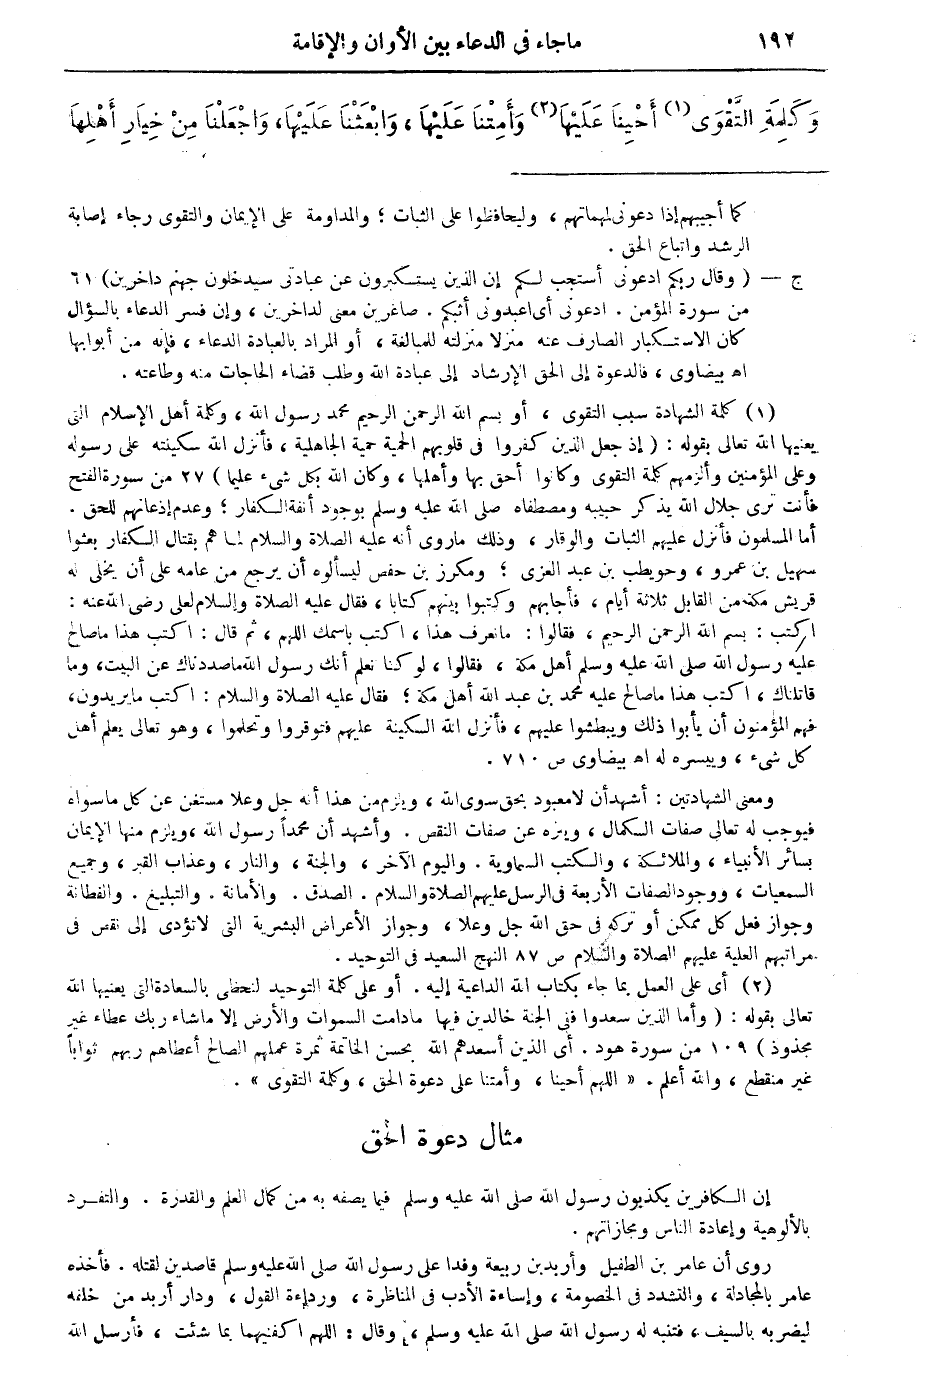 ١٩٢
ماجاء فى الدعاء بين الأوان والإقامة
وَكَلِمَةِ التَّقْوَى(١) أَحْيِنَا عَلَيْهَا(٢) وَأَمِتْنَا عَلَيْهَا ، وَابْعَثْنَا عَلَيْهَا، وَاجْعَلْنَا مِنْ خِيَارِ أَهْلِهَا
كما أجيبهم إذا دعونى لمهماتهم ، وليحافظوا على الثبات ؛ والمداومة على الإيمان والتقوى رجاء إصابة
الرشد واتباع الحق .
ج — ( وقال ربكم ادعونى أستجب لكم إن الذين يستكبرون عن عبادتى سيدخلون جهنم داخرين) ٦١
من سورة المؤمن . ادعونى أى اعبدونى أثبكم . صاغرين معنى لداخرين ، وإن فسر الدعاء بالسؤال
كان الاستكبار الصارف عنه منزلا منزلته للمبالغة ، أو المراد بالعبادة الدعاء ، فإنه من أبوابها
اه بيضاوى ، فالدعوة إلى الحق الإرشاد إلى عبادة الله وطلب قضاء الحاجات منه وطاعته .
(١) كلمة الشهادة سبب التقوى ، أو بسم الله الرحمن الرحيم محمد رسول الله ، وكلمة أهل الإسلام التى
يعنيها الله تعالى بقوله : ( إذ جعل الذين كفروا فى قلوبهم الحمية حمية الجاهلية ، فأنزل الله سكينته على رسوله
وعلى المؤمنين وألزمهم كلمة التقوى وكانوا أحق بها وأهلها ، وكان الله بكل شىء عليما ) ٢٧ من سورة الفتح
فأنت ترى جلال الله يذكر حبيبه ومصطفاه صلى الله عليه وسلم بوجود أنفة الكفار ؛ وعدم إذعانهم للحق .
أما المسلمون فأنزل عليهم الثبات والوقار ، وذلك ماروى أنه عليه الصلاة والسلام لما هم بقتال الكفار بعثوا
سهيل بن عمرو ، وحويطب بن عبد العزى ؛ ومكرز بن حفص ليسألوه أن يرجع من عامه على أن يخلى له
قريش مكة من القابل ثلاثة أيام ، فأجابهم وكتبوا بينهم كتابا ، فقال عليه الصلاة والسلام لعلى رضى الله عنه :
اكتب : بسم الله الرحمن الرحيم ، فقالوا : مانعرف هذا ، اكتب باسمك اللهم ، ثم قال : اكتب هذا ماصالح
عليه رسول الله صلى الله عليه وسلم أهل مكة ، فقالوا ، لو كنا نعلم أنك رسول الله ماصددناك عن البيت، وما
قاتلناك ، اكتب هذا ماصالح عليه محمد بن عبد الله أهل مكة ؛ فقال عليه الصلاة والسلام : اكتب مايريدون،
فهم المؤمنون أن يأبوا ذلك ويبطشوا عليهم ، فأنزل الله السكينة عليهم فتوقروا وتحلموا ، وهو تعالى يعلم أهل
كل شىء ، وييسره له اه بيضاوى ص ٧١٠ .
ومعنى الشهادتين : أشهد أن لامعبود بحق سوى الله ، ويلزم من هذا أنه جل وعلا مستغن عن كل ماسواه
فيوجب له تعالى صفات الكمال ، وينزه عن صفات النقص . وأشهد أن محمداً رسول الله ،ويلزم منها الإيمان
بسائر الأنبياء ، والملائكة ، والكتب السماوية . واليوم الآخر ، والجنة ، والنار ، وعذاب القبر ، وجميع
السمعيات ، ووجود الصفات الأربعة فى الرسل عليهم الصلاة والسلام . الصدق . والأمانة . والتبليغ . والفطانة
وجواز فعل كل ممكن أو تركه فى حق الله جل وعلا ، وجواز الأعراض البشرية التى لاتؤدى إلى نقص فى
مراتبهم العلية عليهم الصلاة والسلام ص ٨٧ النهج السعيد فى التوحيد .
(٢) أى على العمل بما جاء بكتاب الله الداعية إليه . أو على كلمة التوحيد لنحظى بالسعادة التى يعنيها الله
تعالى بقوله : ( وأما الذين سعدوا ففى الجنة خالدين فيها مادامت السموات والأرض إلا ماشاء ربك عطاء غير
مجذوذ ) ١٠٩ من سورة هود . أى الذين أسعدهم الله بحسن الخاتمة ثمرة عملهم الصالح أعطاهم ربهم ثواباً
غير منقطع ، والله أعلم . « اللهم أحينا ، وأمتنا على دعوة الحق ، وكلمة التقوى » .
مثال دعوة الحق
إن الكافرين يكذبون رسول الله صلى الله عليه وسلم فيما يصفه به من كمال العلم والقدرة . والتفرد
بالألوهية وإعادة الناس ومجازاتهم .
روى أن عامر بن الطفيل وأربد بن ربيعة وفدا على رسول الله صلى الله عليه وسلم قاصدين لقتله . فأخذه
عامر بالمجادلة ، والتشدد فى الخصومة ، وإساءة الأدب فى المناظرة ، ورداءة القول ، ودار أربد من خلفه
ليضربه بالسيف ، فتنبه له رسول الله صلى الله عليه وسلم ، وقال : اللهم اكفنيهما بما شئت ، فأرسل الله